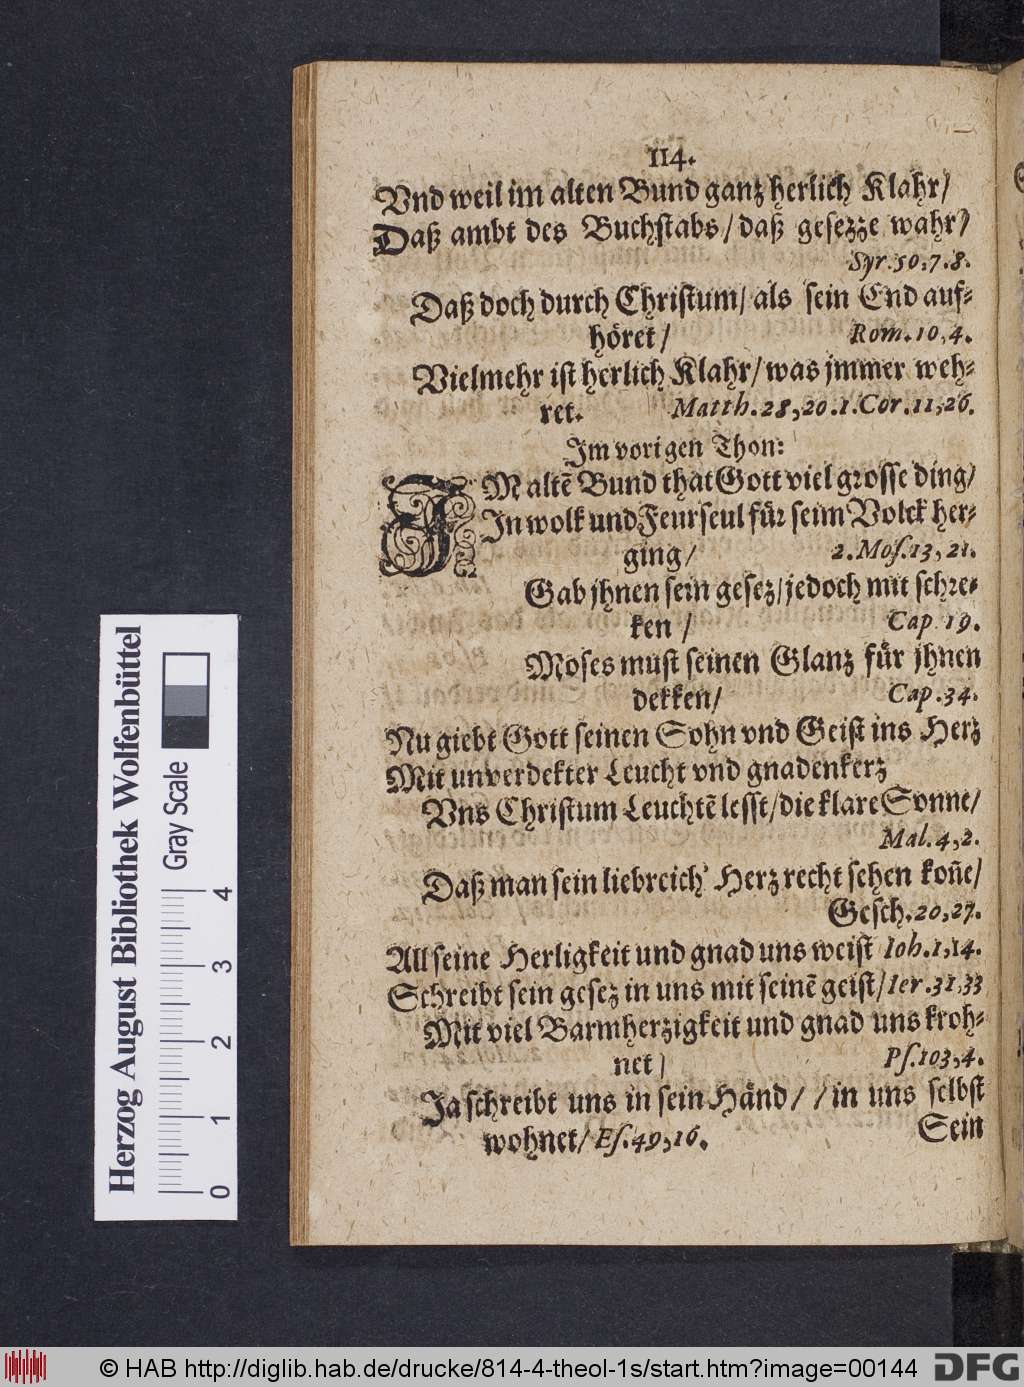 114.
Vnd weil im alten Bund ganz herlich Klahr/
Daß ambt des Buchstabs/ daß gesezze wahr/
Syr. 50, 7. 8.
Daß doch durch Christum/ als sein End auf-
höret/ Rom. 10, 4.
Vielmehr ist herlich Klahr/ was jmmer weh-
ret. Matth. 28, 20. 1. Cor. 11, 26.
Im vorigen Thon:
IM altē Bund that Gott viel grosse ding/
In wolk und Feurseul für seim Volck her-
ging/ 2. Mos. 13, 21.
Gab jhnen sein gesez/ jedoch mit schre-
ken / Cap. 19.
Moses must seinen Glanz für jhnen
dekken/ Cap. 34.
Nu giebt Gott seinen Sohn vnd Geist ins Herz
Mit unverdekter Leucht vnd gnadenkerz
Vns Christum Leuchtē lesst/ die klare Sonne/
Mal. 4, 2.
Daß man sein liebreich Herz recht sehen kon̄e/
Gesch. 20, 27.
All seine Herligkeit und gnad uns weist Ioh. 1, 14.
Schreibt sein gesez in uns mit seinē geist/ Ier. 31, 33
Mit viel Barmherzigkeit und gnad uns kroh-
net/ Ps. 103, 4.
Ja schreibt uns in sein Händ/ / in uns selbst
wohnet/ Es. 49, 16. Sein
Herzog August Bibliothek Wolfenbüttel
Gray Scale
0 1 2 3 4
© HAB http://diglib.hab.de/drucke/814-4-theol-1s/start.htm?image=00144
DFG